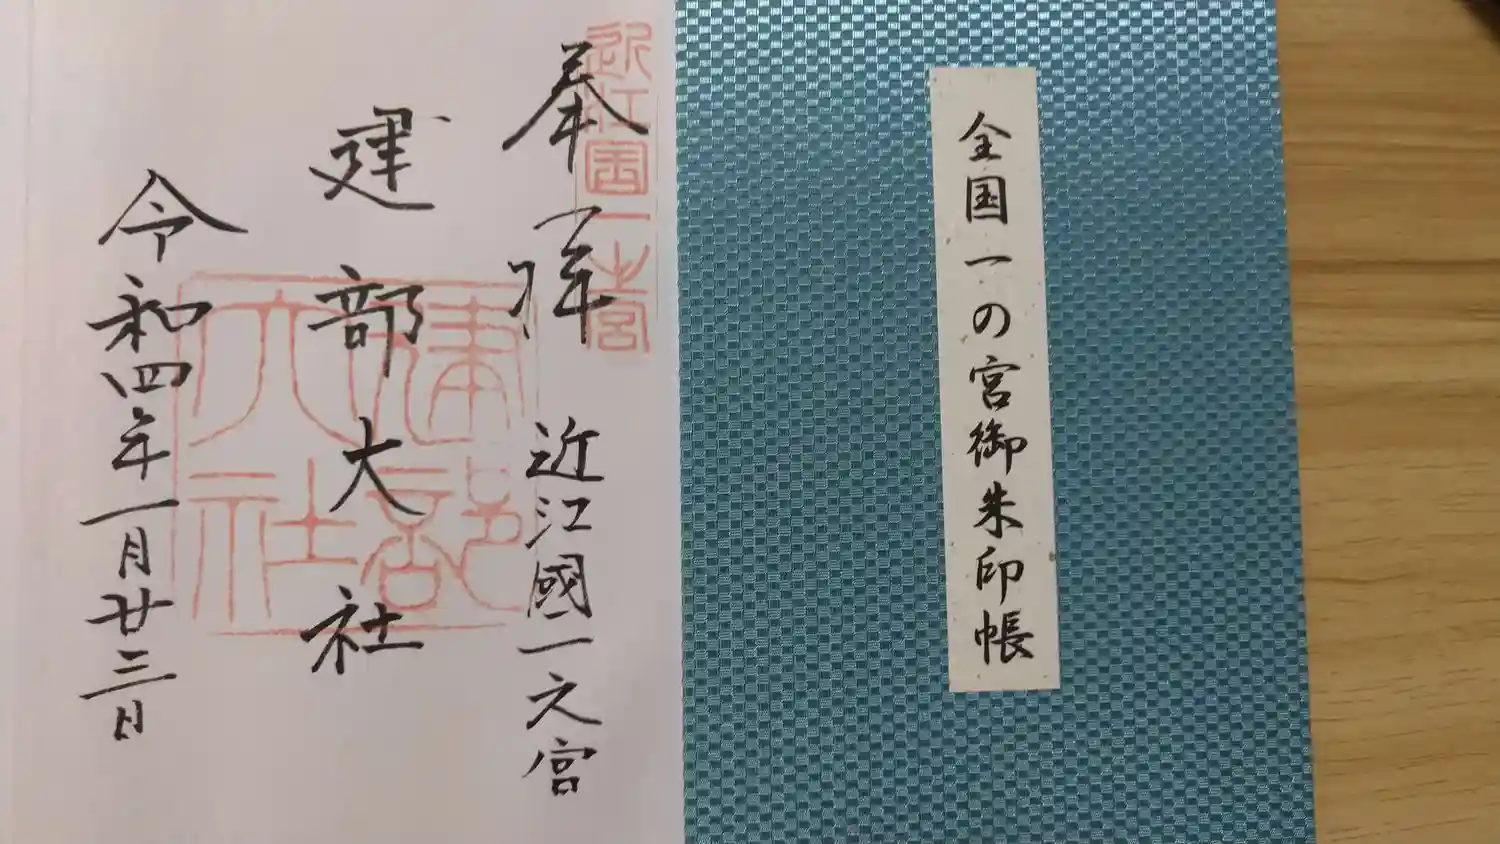 全国一の宮御朱印帳
奉拝 近江國一之宮
近江国一之宮
建部大社
建部大社
令和四年一月廿三日